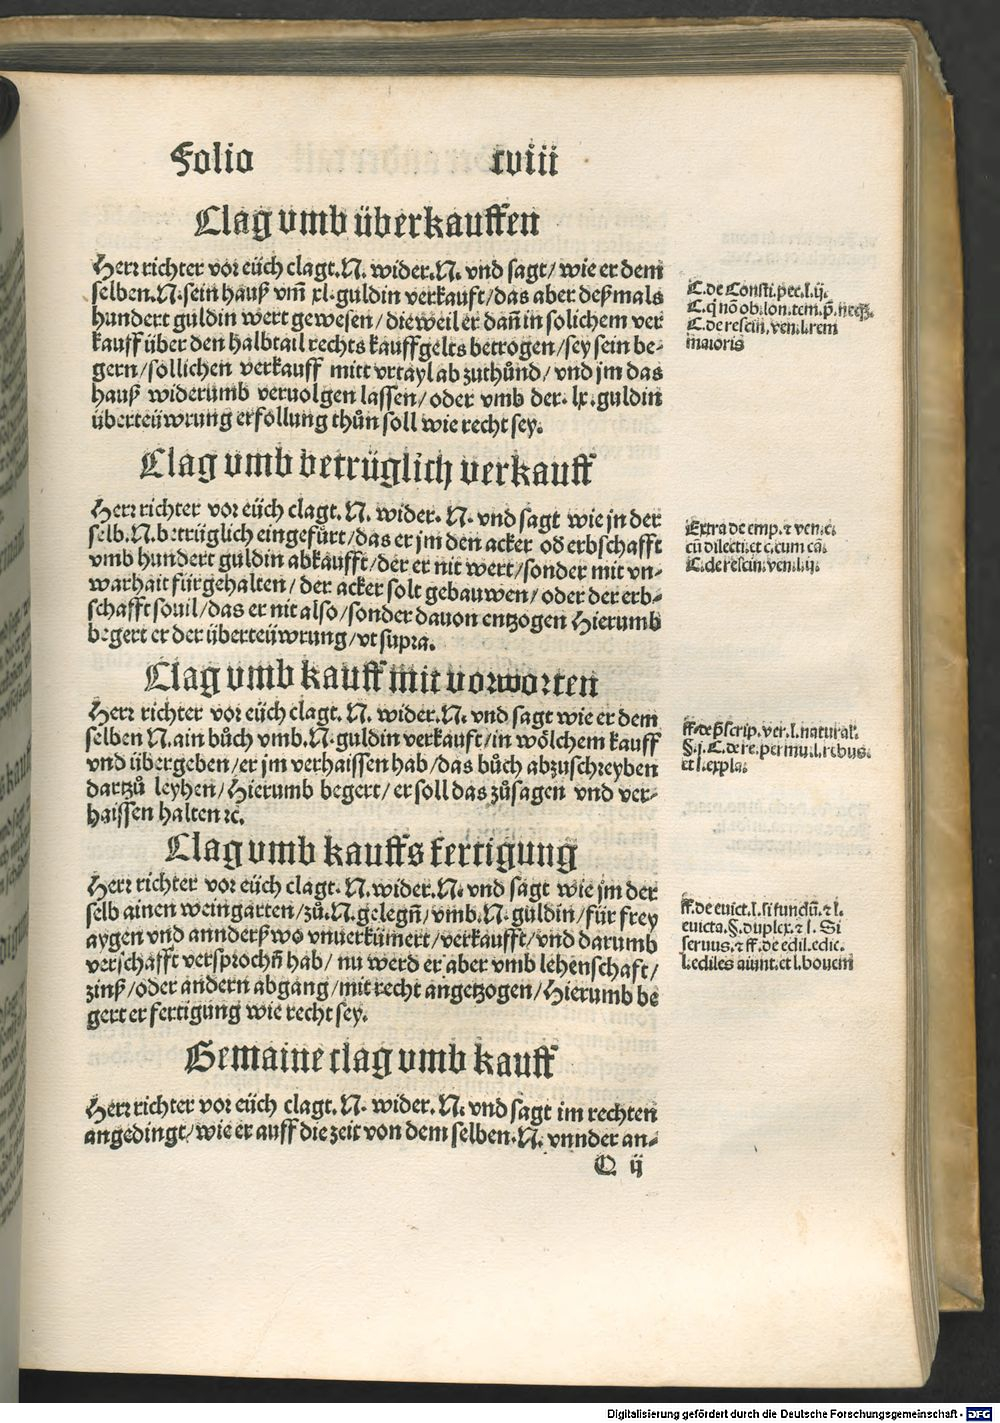 Folio xviii
Clag vmb überkauffen
Herr richter vor eüch clagt. N. wider. N. vnd sagt/ wie er dem
selben. N. sein hauß vm̄ xl. guldin verkauft/ das aber deßmals
hundert guldin wert gewesen/ dieweil er dañ in solichem ver
kauff über den halbtail rechts kauffgelts betrogen/ sey sein be⸗
gern/ söllichen verkauff mitt vrtayl ab zuthůnd/ vnd jm das
hauß widerumb veruolgen lassen/ oder vmb der. lx. guldin
überteüwrung erföllung thůn soll wie recht sey.
C. de Consti. pec. l. ij.
C. de rescin. ven. l. rem
maioris
Clag vmb betrüglich verkauff
Herr richter vor eüch clagt. N. wider. N. vnd sagt wie jn der
selb. N. betrüglich eingefürt/ das er jm den acker oď erbschafft
vmb hundert guldin abkaufft/ der er nit wert/ sonder mit vn⸗
warhait fürgehalten/ der acker solt gebauwen/ oder der erb⸗
schafft souil/ das er nit also/ sonder dauon entzogen Hierumb
begert er der überteüwrung/ vt supra.
Extra de emp. ⁊ ven. c.
cū dilecti. et c. cum cā.
C. de rescin. ven. l. ij.
Clag vmb kauff mit vorworten
Herr richter vor eüch clagt. N. wider. N. vnd sagt wie er dem
selben N. ain bůch vmb. N. guldin verkauft/ in wölchem kauff
vnd übergeben/ er jm verhaissen hab/ das bůch abzuschreyben
dartzů leyhen/ Hierumb begert/ er soll das zůsagen vnd ver⸗
haissen halten ⁊c̄.
ff. de p̄scrip. ver. l. natural.
§. j. C. de re. permu. l. rebus.
et l. expla.
Clag vmb kauffs fertigung
Herr richter vor eüch clagt. N. wider. N. vnd sagt wie jm der
selb ainen weingarten/ zů. N. gelegñ/ vmb. N. guldin/ für frey
aygen vnd annderßwo vnuerkümert/ verkaufft/ vnd darumb
verschafft versprochñ hab/ nu werd er aber vmb lehenschaft/
zinß/ oder andern abgang/ mit recht angetzogen/ Hierumb be
gert er fertigung wie recht sey.
ff. de euict. l. si fundū. ⁊ l.
euicta. §. duplex. ⁊ l. Si
seruus. ⁊ ff. de edil. edic.
l. ediles aiunt. et l. bouem
Gemaine clag vmb kauff
Herr richter vor eüch clagt. N. wider. N. vnd sagt im rechten
angedingt/ wie er auff die zeit von dem selben. N. vnnder an⸗
Q ij
Digitalisierung gefördert durch die Deutsche Forschungsgemeinschaft - DFG